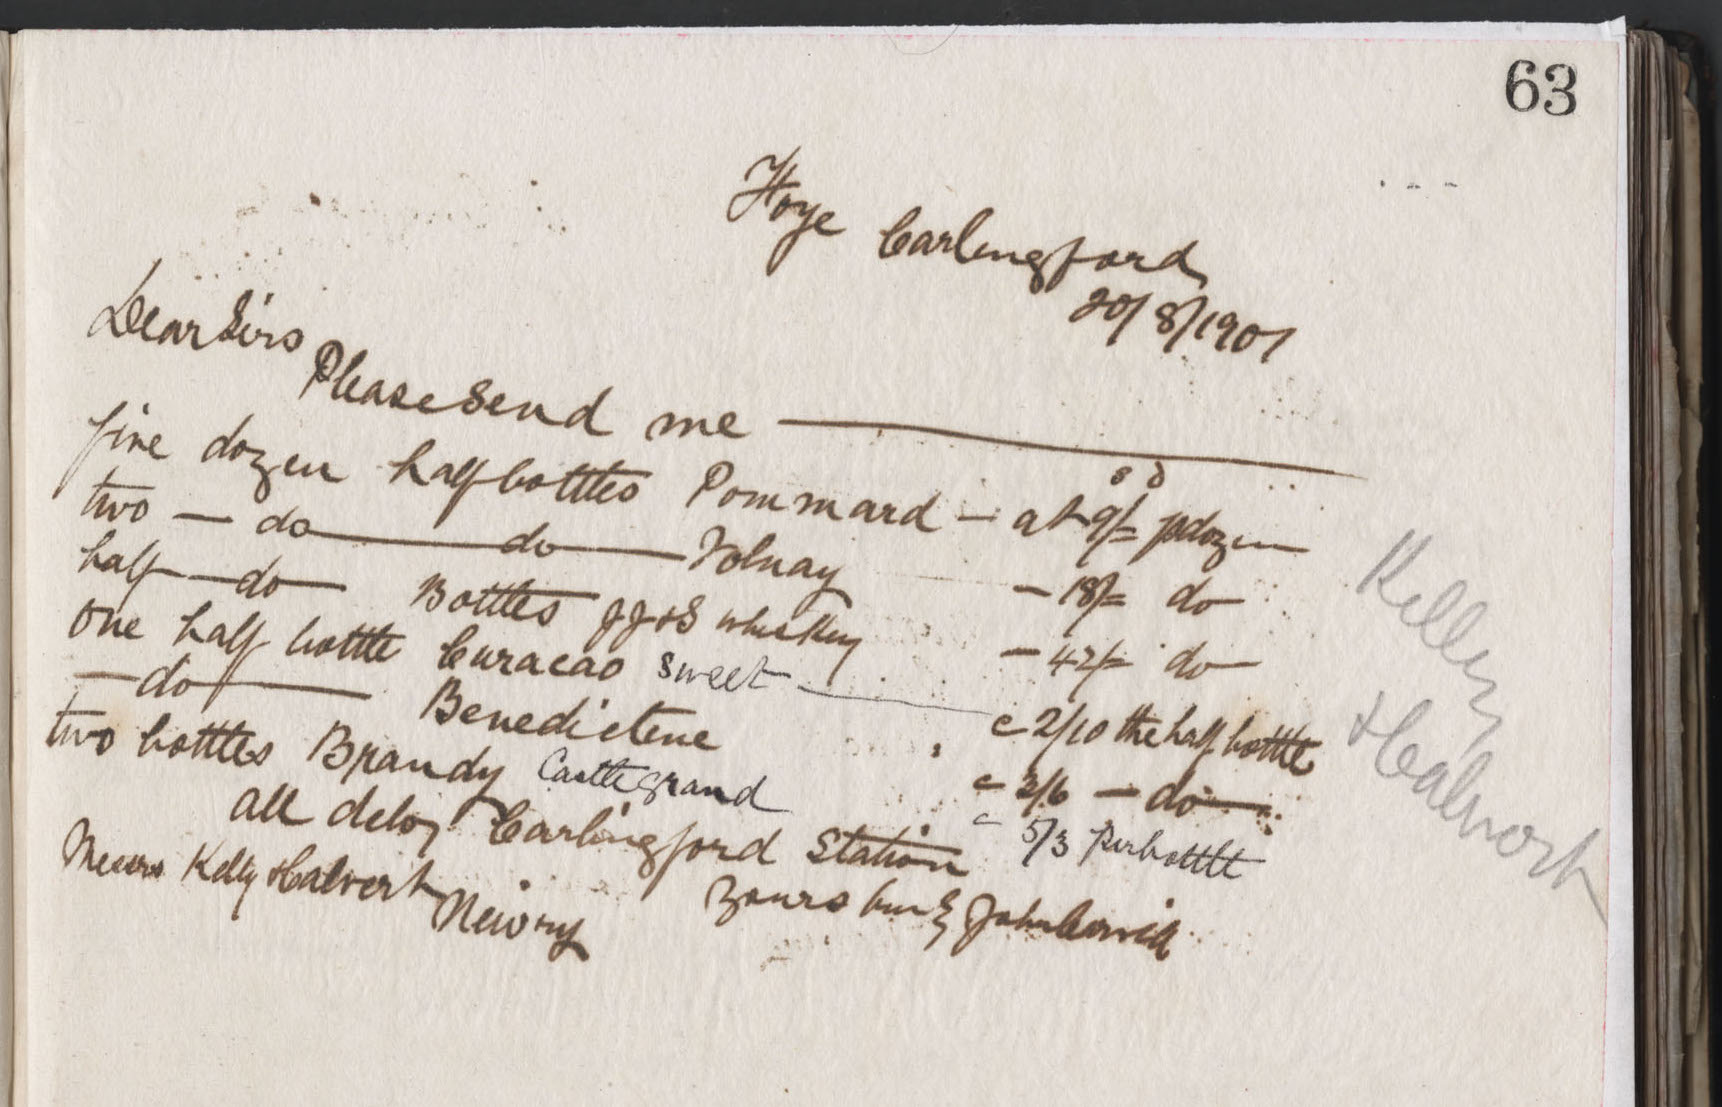 63
Foye Carlingford
20/8/1901
Dear Sirs
Please send me
five dozen half bottles Pommard - at 9/= p dozen
s d
two - do do Volnay - 18/= do
half - do Bottles JJ&S whiskey - 42/= do
one half bottle Curacao sweet c 2/10 the half bottle
- do Benedictene c 3/6 - do
two bottles Brandy Castlegrand c 5/3 per bottle
all deloy Carlingford Station
Yours truly John
Messrs Kelly & Calvert
Newry
Kelly
& Calwort